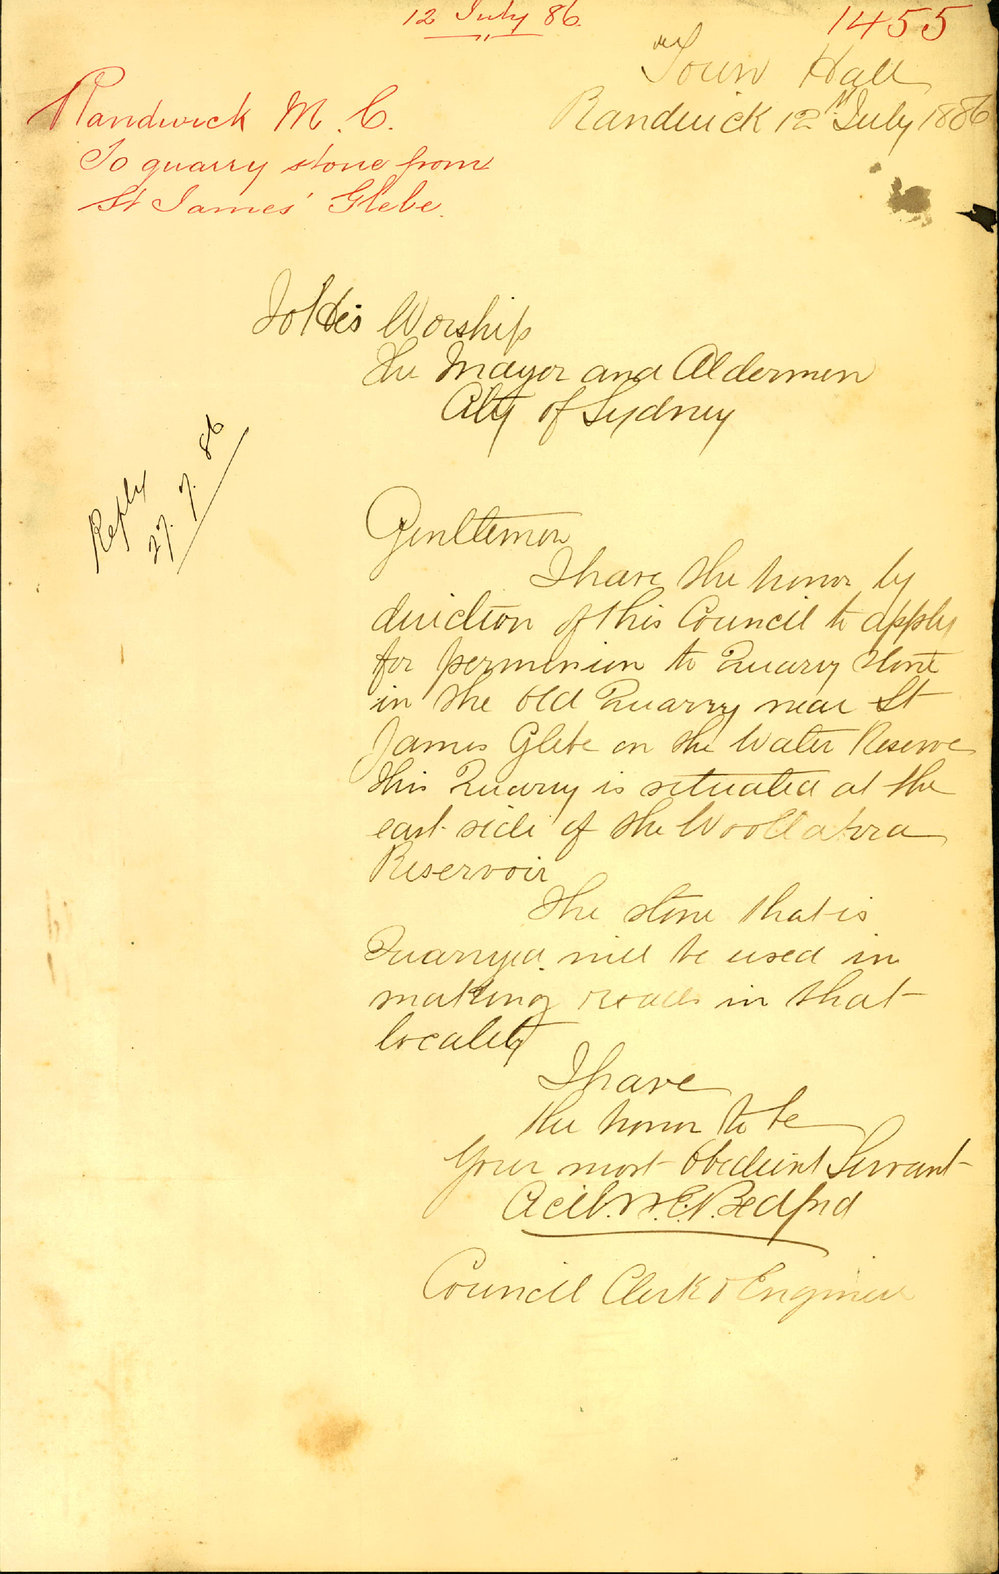 12 July 86.
1455
Town Hall
Randwick 12th July 1886
Randwick M. C.
To quarry stone from
St James' Glebe.
To His Worship
The Mayor and Aldermen
City of Sydney
Reply
27. 7. 86
Gentlemen
I have the honor by
direction of this Council to apply
for permission to Quarry stone
in the old Quarry near St
James Glebe on the Water Reserve
this Quarry is situated at the
east side of the Woollahra
Reservoir
The stone that is
Quarryed will be used in
making roads in that
locality
I have
the honor to be
Your most obedient Servant
Bedford
Council Clerk & Engineer